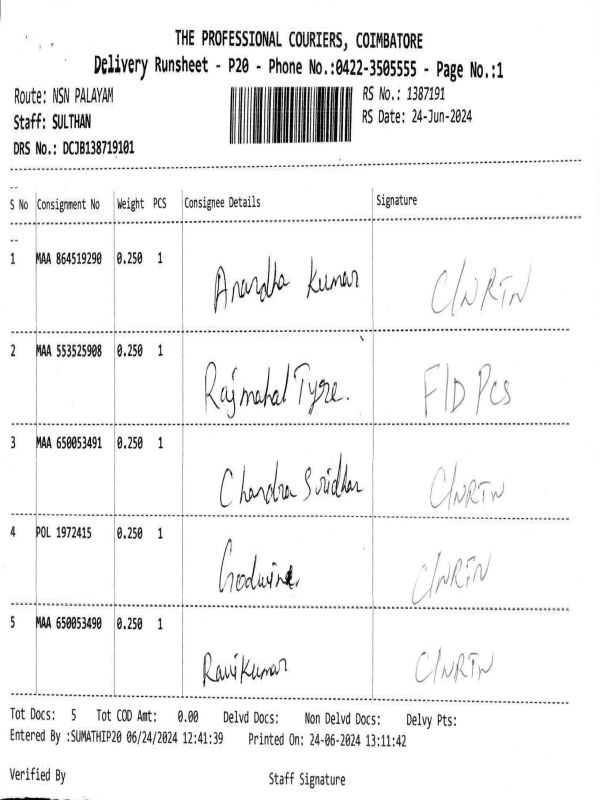 THE PROFESSIONAL COURIERS, COIMBATORE
Delivery Runsheet - P20 - Phone No.:0422-3505555 - Page No.:1
Route: NSN PALAYAM RS No.: 1387191
Staff: SULTHAN RS Date: 24-Jun-2024
DRS No.: DCJB138719101
S No Consignment No Weight PCS Consignee Details Signature
1 MAA 864519290 0.250 1 Anandha Kumar C/NRTN
2 MAA 553525908 0.250 1 Rajmahal Tyre. F/D Pcs
3 MAA 650053491 0.250 1 Chandra Sridhar C/NRTN
4 POL 1972415 0.250 1 Godwin C/NRTN
5 MAA 650053490 0.250 1 Ravikumar C/NRTN
Tot Docs: 5 Tot COD Amt: 0.00 Delvd Docs: Non Delvd Docs: Delvy Pts:
Entered By :SUMATHIP20 06/24/2024 12:41:39 Printed On: 24-06-2024 13:11:42
Verified By Staff Signature